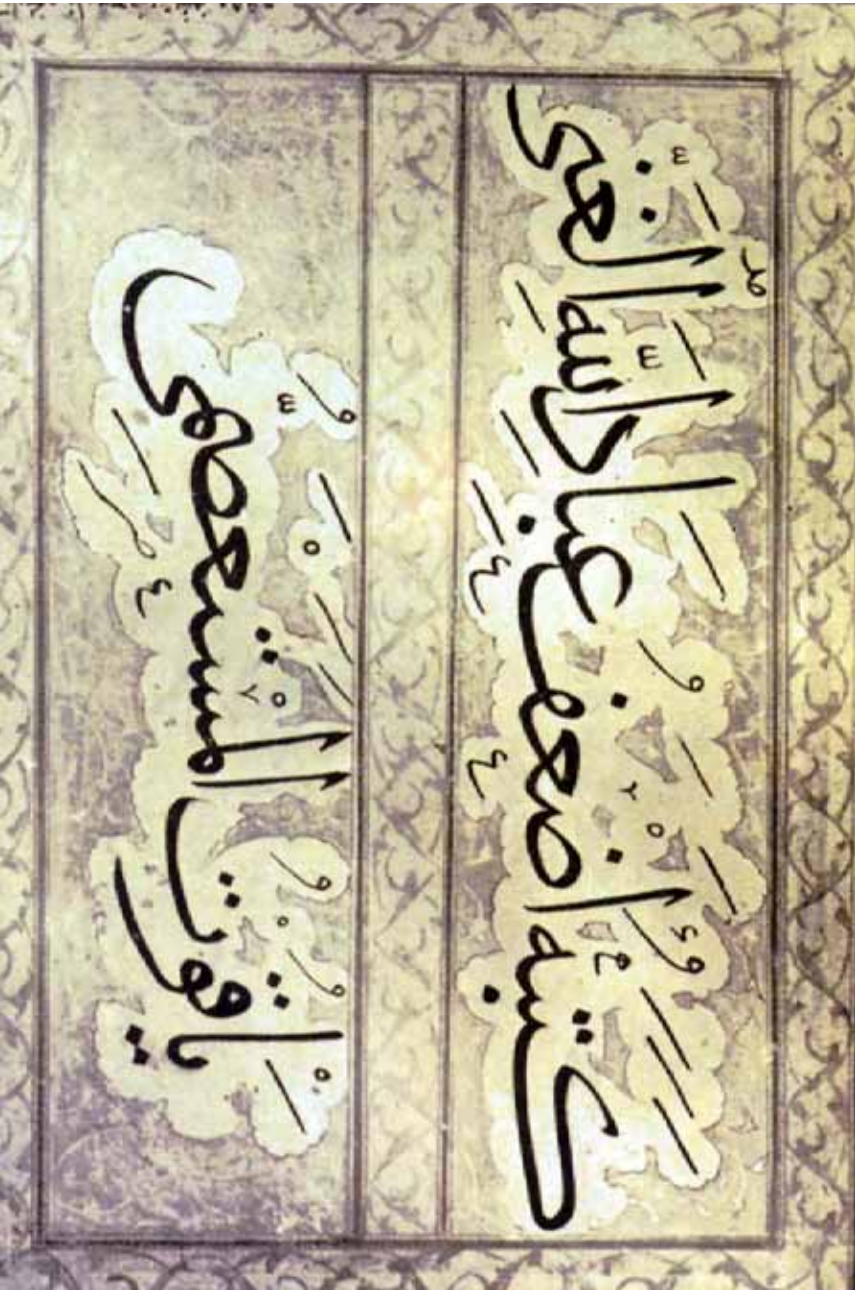 كَتَبَهُ أَضْعَفُ عِبَادِ اللَّهِ الغَنِيِّ
يَاقُوْتُ الْمُسْتَعْصِمِيُّ